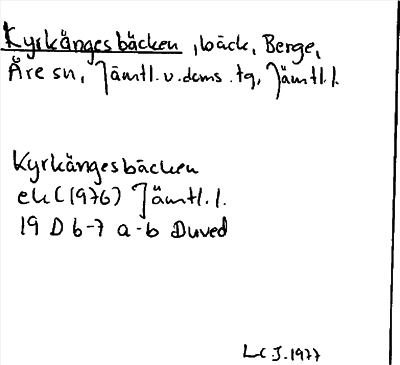 Kyrkängesbäcken, bäck, Berge,
Åre sn, Jämtl.v.doms.tg, Jämtl.l.
Kyrkängesbäcken
ek (1976) Jämtl.l.
19 D 6-7 a-b Duved
LCJ.1977